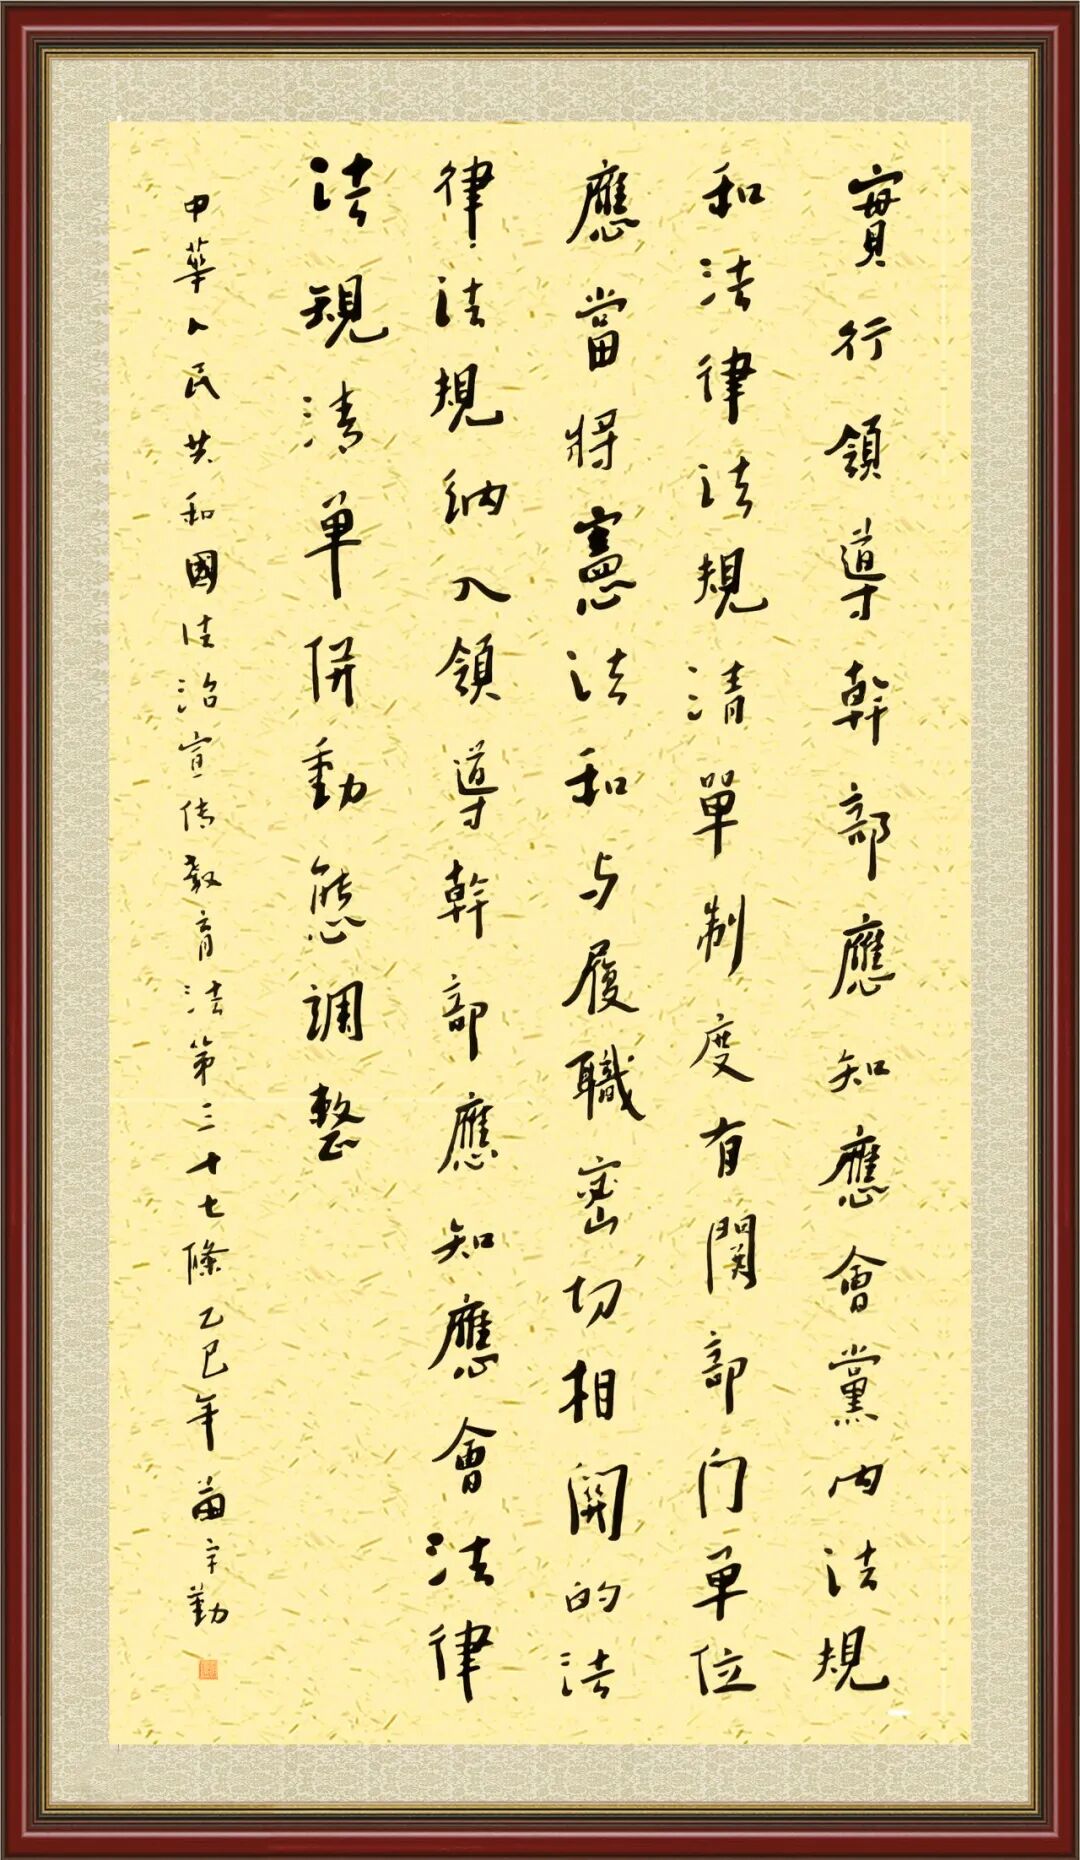 實行領導幹部應知應會黨内法規
和法律法規清單制度有関部门单位
應當將憲法和与履職密切相関的法
律法規納入領導幹部應知應會法律
法規清单併動態調整
中華人民共和國法治宣传教育法第三十七條乙巳年勤